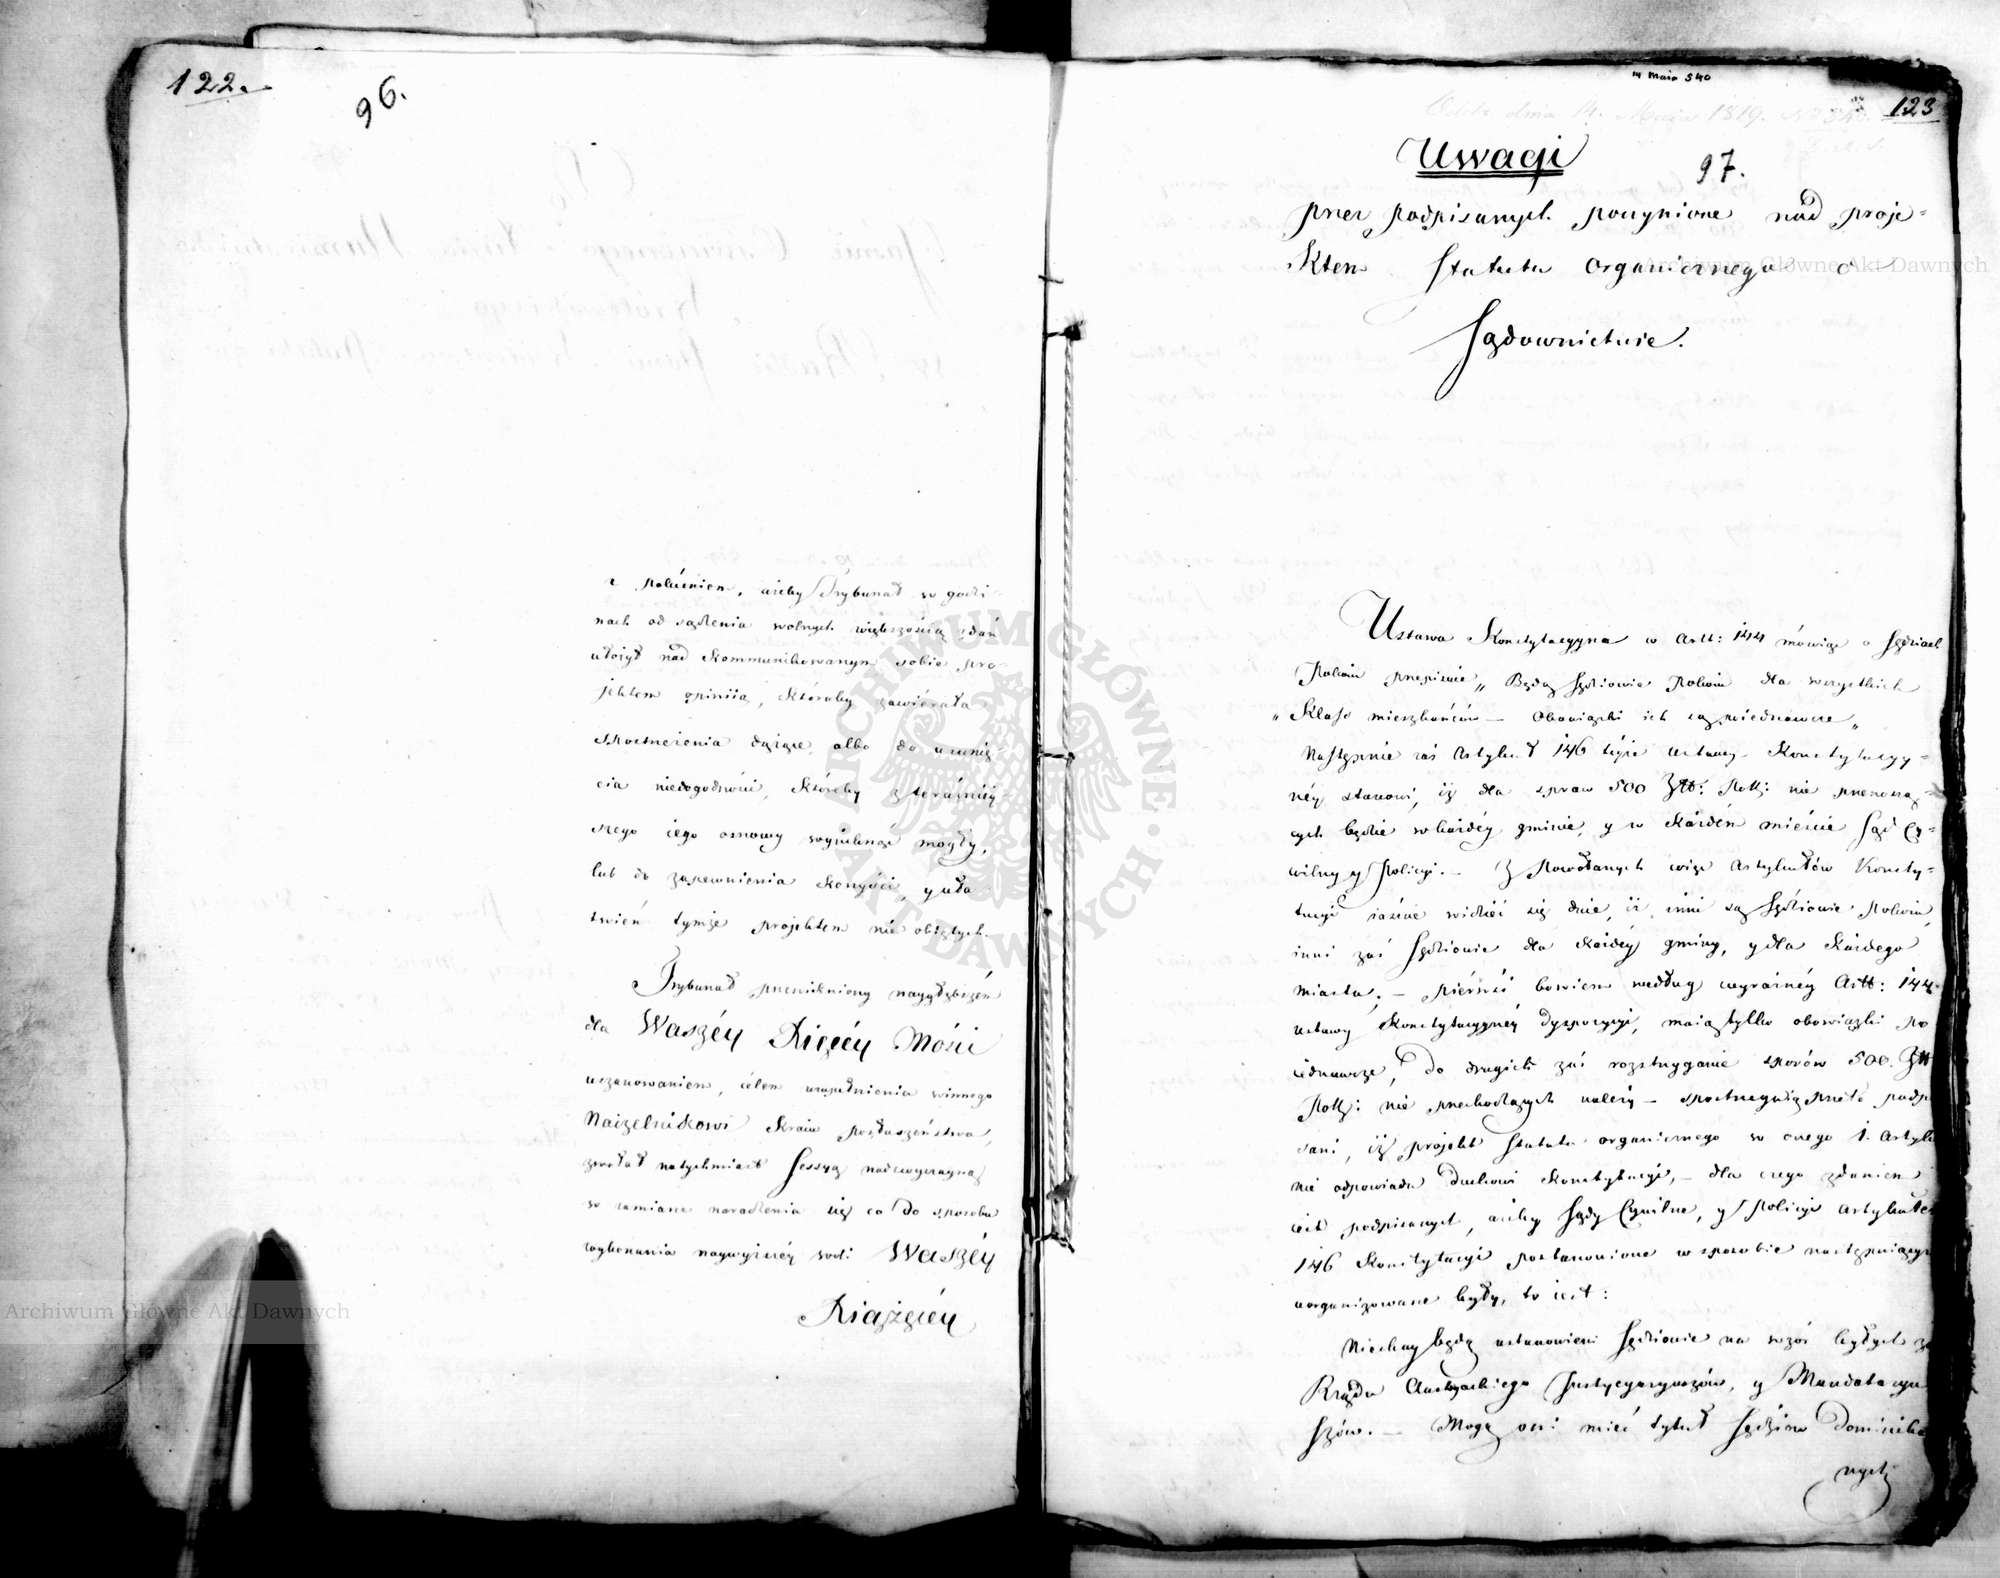 122.
96.
z poleceniem, ażeby Trybunał w godzi-
nach od sądzenia wolnych większością zdań
ułożył nad kommunikowanym sobie pro-
jektem opiniią, któraby zawiérała
spostrzeżenia dążące albo do usunię-
cia niedogodności, któreby z teraźniéy-
szego iego osnowy wyniknąć mogły,
lub do zapewnienia korzyści, y uła-
twień tymże projektem nie obiętych.
Trybunał przenikniony naygłębszém
dla Waszéy Xiążęcéy Mości
uszanowaniem, celem uzupełnienia winnego
Naczelnikowi Kraiu posłuszeństwa,
zwołał natychmiast Sessyą nadzwyczayną
w zamiarze naradzenia się co do sposobu
wykonania naywyższéy woli Waszéy
Xiążęcéy
14 Maia 540
Odeb. dnia 14. Maja 1819.
123
Uwagi
97.
przez podpisanych poczynione nad proje-
ktem Statutu Organicznego o
Sądownictwie.
Ustawa Konstytucyyna w Artt: 144 mówiąc o Sędziach
Pokoiu przepisuie „Będą Sędziowie Pokoiu dla wszystkich
„Klass mieszkańców — Obowiązki ich są poiednawcze„
Następnie zaś Artykuł 146 téyże ustawy Konstytucyy-
néy stanowi, iż dla spraw 500 Złt: Pols: nie przenoszą-
cych będzie w każdéy gminie, y w każdém mieście Sąd Cy-
wilny y Policyi. — Z powołanych więc Artykułów Konsty-
tucyi iaśnie widzieć się daie, iż inni są Sędziowie Pokoiu
inni zaś Sędziowie dla każdéy gminy, y dla każdego
miasta. — Piérwsi bowiem według wyraźnéy Artt: 144
ustawy Konstytucyynéy dyspozycyi, maią tylko obowiązki po
iednawcze, Do drugich zaś rozstrzyganie sporów 500. Złt
Pols: nie przechodzących należy — spostrzegaią przeto podpi
sani, iż projekt Statutu organicznego w swego 1. Artyku
nie odpowiada duchowi Konstytucyi, — dla czego zdaniem
iest podpisanych, ażeby Sądy Cywilne, y Policyi Artykułem
146 Konstytucyi postanowione w sposobie następuiącym
uorganizowane były, to iest:
Niechay będą ustanowieni Sędziowie na wzór byłych za
Rządu Austryackiego Justycyaryuszów, y Mandataryu
szów. — Mogą oni mieć tytuł Sędziów Dominikal
nych
Archiwum Główne Akt Dawnych
Archiwum Główne Akt Dawnych
ARCHIWUM GŁÓWNE · AKT DAWNYCH ·